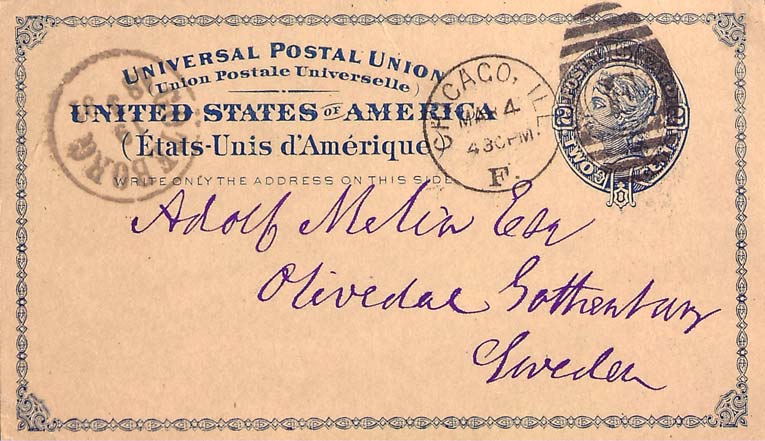 UNIVERSAL POSTAL UNION
(Union Postale Universelle)
UNITED STATES OF AMERICA
(États-Unis d'Amérique
WRITE ONLY THE ADDRESS ON THIS SIDE
CHICAGO, ILL
MAR 4
430PM
F.
GÖTEBORG
POSTAL CARD
TWO CENTS
2 2
Adolf Melin Esq
Olivedal Gothenburg
Sweden